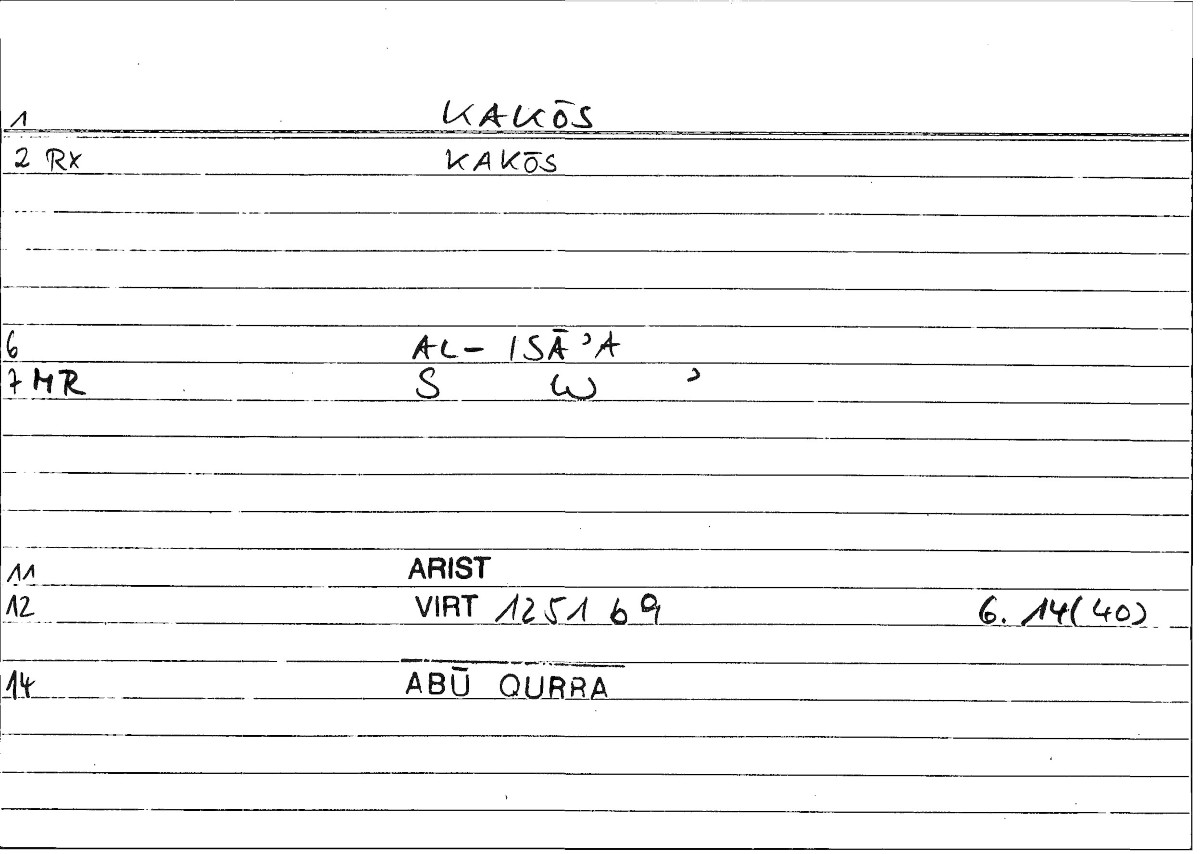 1 KAKŌS
2 RX KAKŌS
6 AL- ISĀʾA
7 MR S W ʾ
11 ARIST
12 VIRT 1251 b9 6. 14(40)
14 ABŪ QURRA